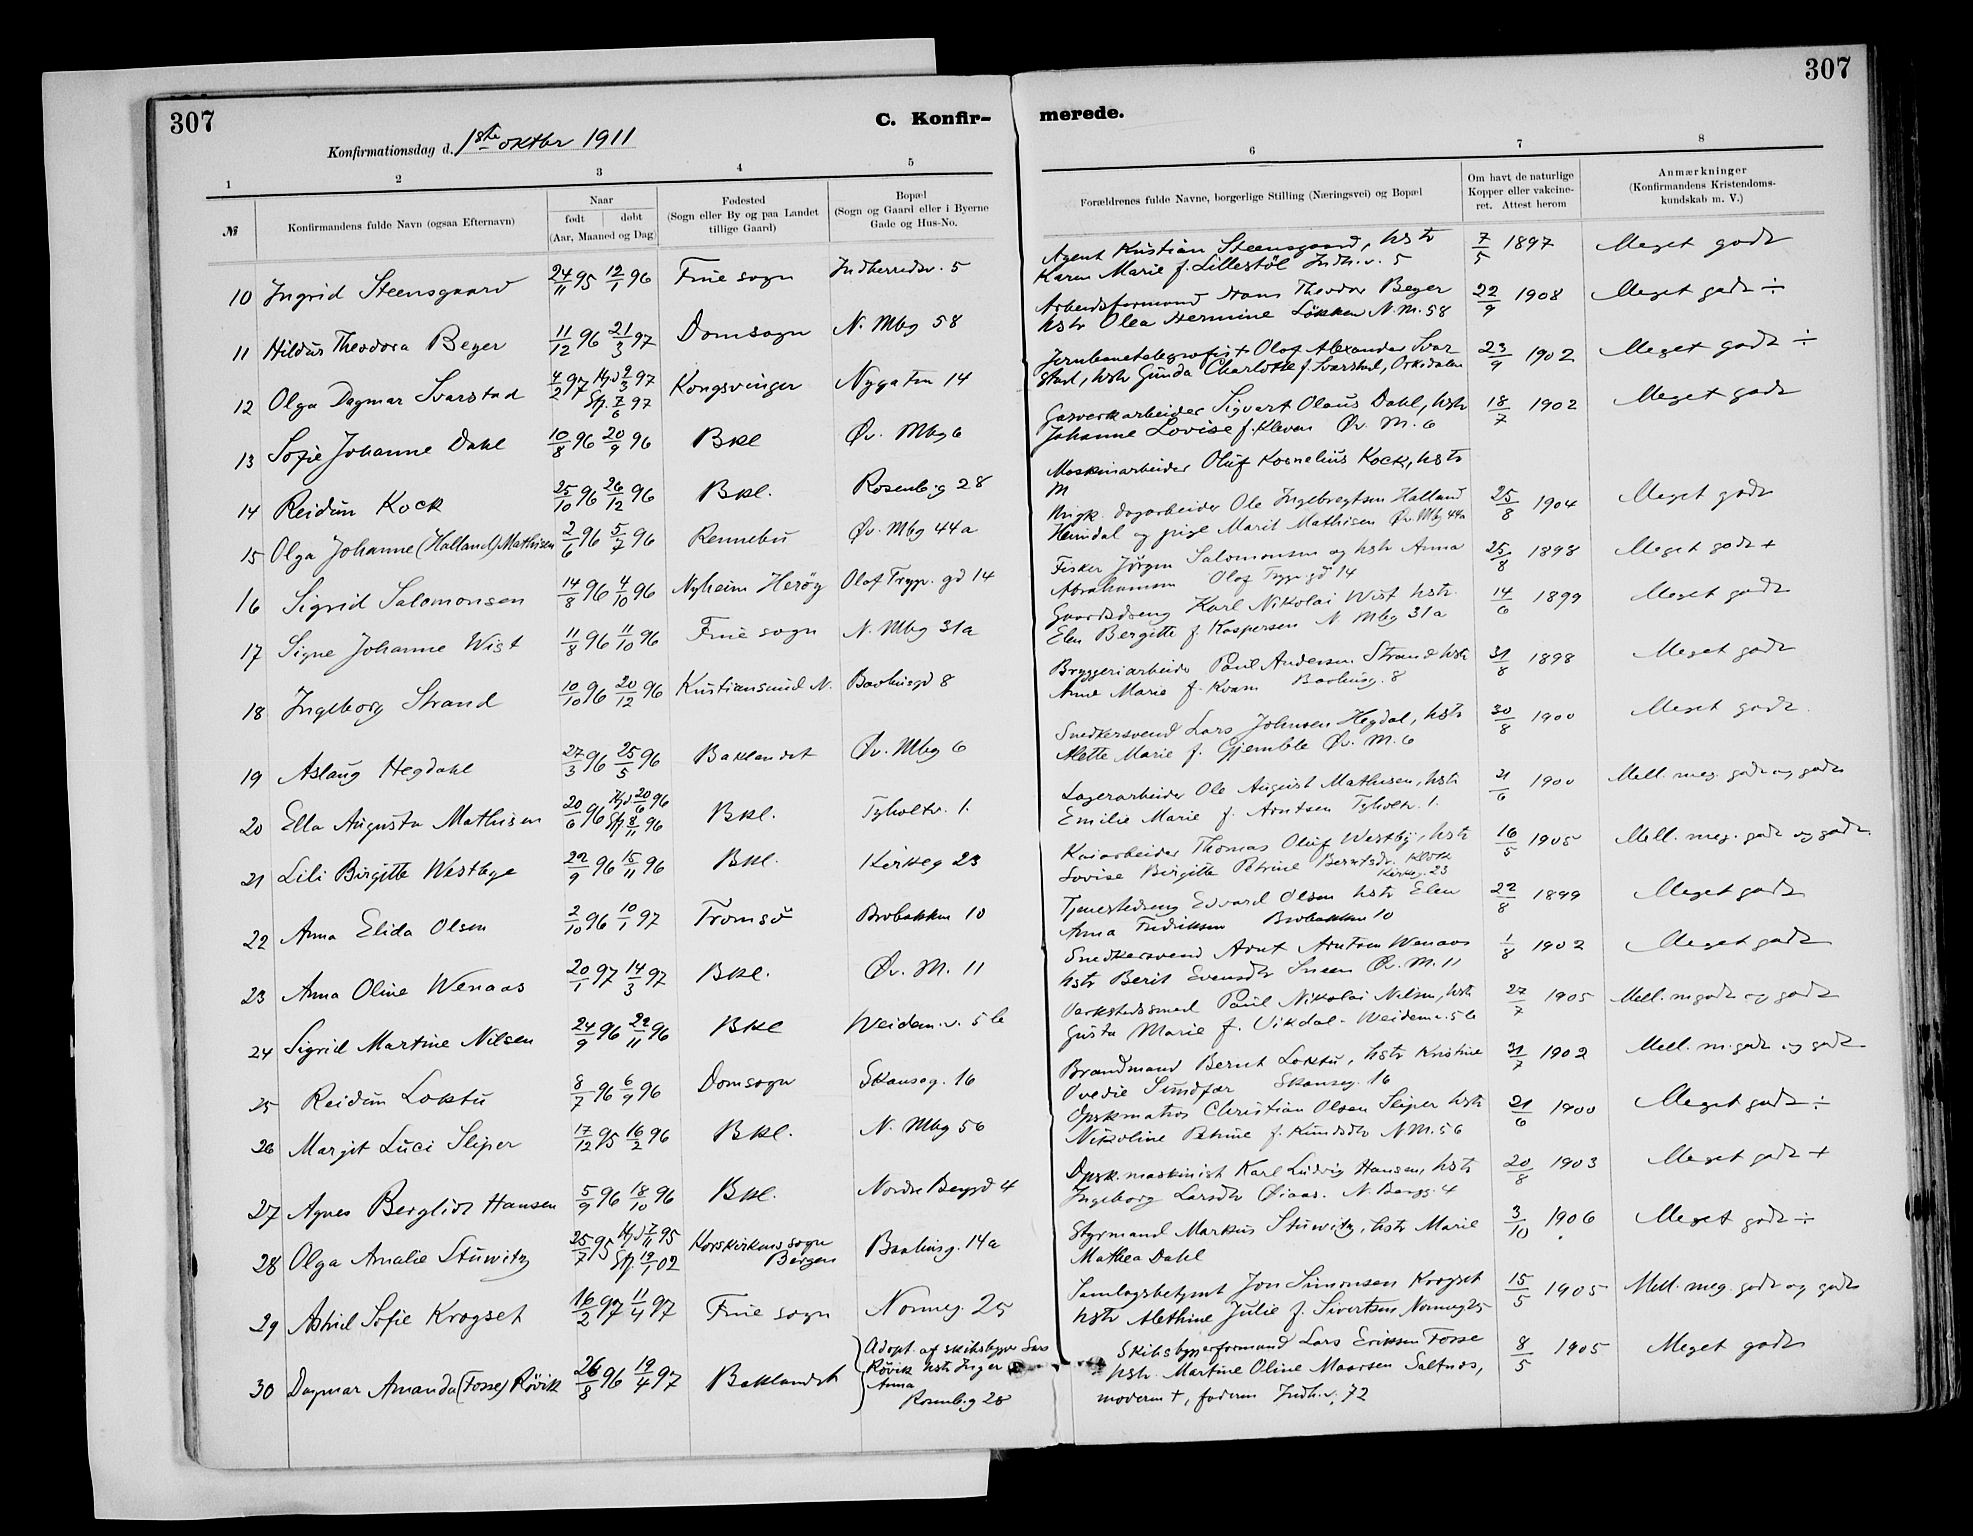 307
307
C. Konfir-
merede.
Konfirmationsdag d. 1ste oktbr 1911
1 2 3 4 5 6 7 8
№
Konfirmandens fulde Navn (ogsaa Efternavn)
Naar
født døbt
(Aar, Maaned og Dag)
Fødested
(Sogn eller By og paa Landet
tillige Gaard)
Bopæl
(Sogn og Gaard eller i Byerne
Gade og Hus-No.
Forældrenes fulde Navne, borgerlige Stilling (Næringsvei) og Bopæl
Om havt de naturlige
Kopper eller vakcine-
ret. Attest herom
Anmærkninger
(Konfirmandens Kristendoms-
kundskab m. V.)
10 Ingrid Steensgaard 24/11 95 12/1 96 Frue sogn Indherredsv. 5
Agent Kristian Steensgaard, hstr 7/5 1897 Meget godt
Karen Marie f. Lillestöl Indh.v. 5
11 Hildur Theodora Beyer 11/12 96 21/3 97 Domsogn N. Mbg 58
Arbeidsformand Hans Theodor Beyer 22/9 1908 Meget godt ÷
hstr Olea Hermine Lökken N.M. 58
12 Olga Dagmar Svarstad 4/2 97 Hjd 2/3 97 Kongsvinger Nygaten 14
Stf. 7/6 97
Jernbanetelegrafist Olaf Alexander Svar 23/9 1902 Meget godt ÷
stad, hstr Gunda Charlotte f. Svarstad, Orkedalen
13 Sofie Johanne Dahl 10/8 96 20/9 96 Bkl Øv. Mbg 6
Gasverkarbeider Sigvart Olaus Dahl, hstr 18/7 1902 Meget godt
Johanne Lovise f. Kleven Øv. M. 6
14 Reidun Kock 25/10 96 26/12 96 Bkl. Rosenb.g 28
Maskinarbeider Oluf Kornelius Kock, hstr
M
15 Olga Johanne (Halland) Mathisen 2/6 96 5/7 96 Rennebu Øv. Mbg 44a
Ungk. dagarbeider Ole Ingebregtsen Halland 25/8 1904 Meget godt
Heimdal og pige Marit Mathisen Øv. Mbg 44a
16 Sigrid Salomonsen 14/8 96 4/10 96 Nyheim Herøy Olaf Trygv. gd 14
Fisker Jørgen Salomonsen og hstr Anna 25/8 1898 Meget godt +
Abrahamsen Olaf Trygv gd 14
17 Signe Johanne Wist 11/8 96 11/10 96 Frue sogn N. Mbg 31a
Gaardsdreng Karl Nikolai Wist hstr. 14/6 1899 Meget godt
Elen Bergitte f. Kaspersen N Mbg 31a
18 Ingeborg Strand 10/10 96 20/12 96 Kristiansund N. Baahusgd 8
Bryggeriarbeider Paul Andersen Strand hstr 31/8 1898 Meget godt
Anne Marie f. Kvam Baahusg. 8
19 Aslaug Hegdahl 27/3 96 25/5 96 Baklandet Øv. Mbg 6
Snedkersvend Lars Johnsen Hegdal, hstr 30/8 1900 Meget godt.
Mette Marie f. Gjemble Øv. M. 6
20 Ella Augusta Mathisen 20/6 96 Hjd 20/6 96 Bkl. Tyholtv. 1.
Stf 8/11 96
Lagerarbeider Ole August Mathisen, hstr 21/6 1900 Mell. meg. godt og godt
Emilie Marie f. Arntsen Tyholtv. 1.
21 Lili Birgitte Westbye 22/9 96 15/11 96 Bkl. Kirkeg 23
Kaiarbeider Thomas Oluf Westby, hstr 16/5 1905 Mell. meg. godt og godt
Lovise Birgitte Petrine Berntsdr. Klok
Kirkeg. 23
22 Anna Elida Olsen 2/10 96 10/1 97 Tromsö Brobakken 10
Tjenestedreng Edvard Olsen hstr Elen 22/8 1899 Meget godt
Anna Fredriksen Brobakken 10
23 Anna Oline Wenaas 20/1 97 14/3 97 Bkl. Øv. M. 11
Snedkersvend Arnt Arntsen Wenaas 1/8 1902 Meget godt
hstr Berit Evensdtr Sneen Øv. M. 11
24 Sigrid Martine Nilsen 24/9 96 22/11 96 Bkl Weidem.v. 5b
Verkstedssmed Paul Nikolai Nilsen, hstr 27/7 1905 Mell. m godt og godt
Gusta Marie f. Vikdal - Weidem.v. 5b
25 Reidun Loktu 8/7 96 6/9 96 Domsogn Skanseg. 16
Brandmand Bernt Loktu, hstr Kristine 31/7 1902 Mell. m. godt og godt
Ovedie Sundfær Skanseg. 16
26 Margit Luci Sliper 17/12 95 16/2 96 Bkl. N. Mbg 56
Dpskmatros Christian Olsen Sliper hstr 21/6 1900 Meget godt ÷
Nikoline Petrine f. Knudsdtr N.M. 56
27 Agnes Bergliot Hansen 5/9 96 18/10 96 Bkl. Nordre Berggd 4
Dpsk. maskinist Karl Ludvig Hansen, hstr 20/8 1903 Meget godt +
Ingeborg Larsdtr Øiaas. N. Bergg. 4
28 Olga Amalie Stuwitz 25/7 95 Hjd 7/11 95 Korskirkens sogn Baahusg. 14a
Stf. 19/1 02 Bergen
Styrmand Markus Stuwitz, hstr Marie 3/10 1906 Meget godt ÷
Mathea Dahl
29 Astrid Sofie Krogset 16/2 97 11/4 97 Frue sogn Nonneg. 25
Samlagsbetjent Jon Simonsen Krogset 15/5 1905 Mell. meg. godt og godt
hstr Alethine Julie f. Sivertsen Nonneg 25
30 Dagmar Amanda (Fosse) Rövik 26/8 96 19/4 97 Baklandet
Adopt. af skibsbygger Lars
Rövik hstr Inger
Anna
Rosenb.g 28
Skibsbyggerformand Lars Eriksen Fosse 8/5 1905 Meget godt
hstr. Martine Oline Maarsen Saltnes,
moderen +, faderen Indh.v. 72